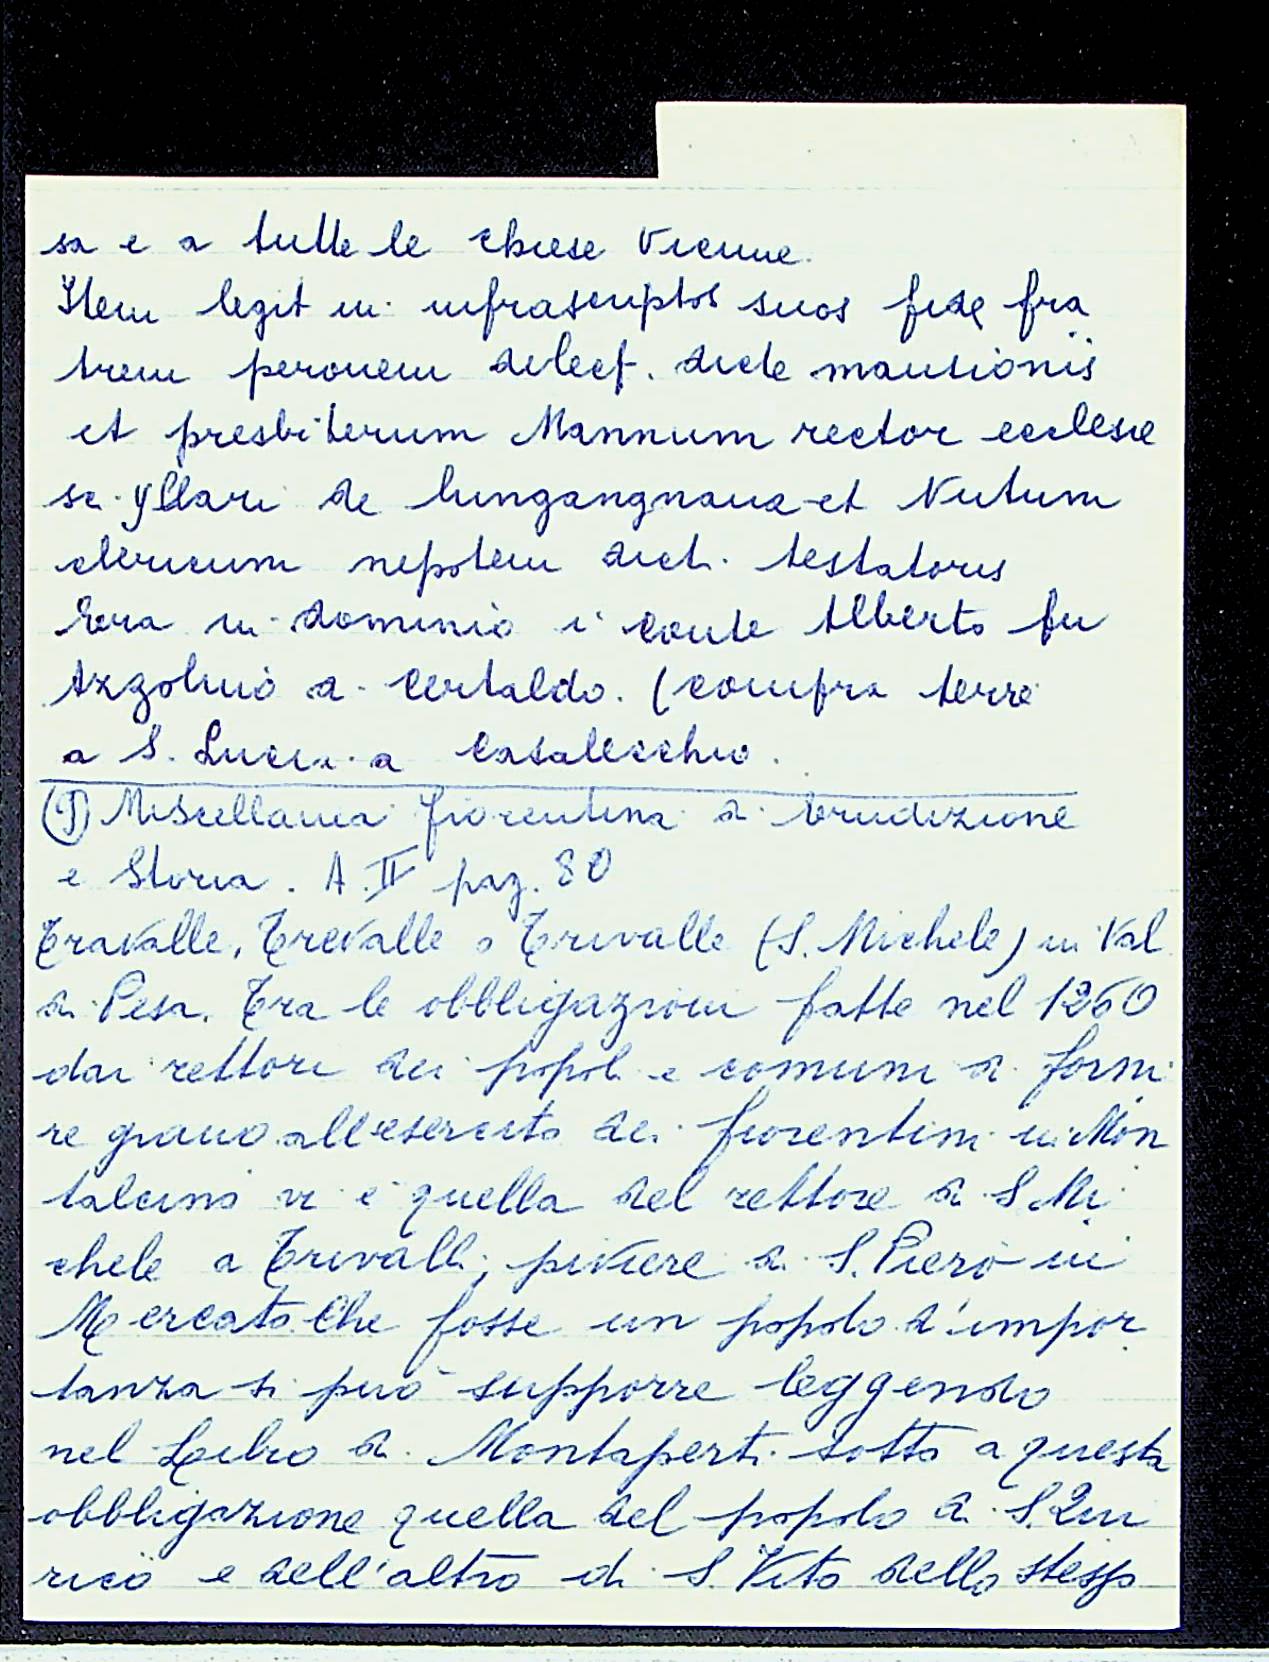 sa e a tutte le chiese vicine.
Item legit in infrascriptos suos fide fra
trem peronem dilect. dicte mansionis
et presbiterum Mannum rector ecclesie
sc. yllari de lungangnana et Nutum
clericum nepotem dict. testatoris
Era in dominio i conte Alberto fu
Azzolino a Certaldo. (compra terre
a S. Lucia a Casalecchio.
(I) Miscellanea fiorentina di Erudizione
e Storia. A. II pag. 80
Travalle, Trevalle o Trivalle (S. Michele) in Val
di Pesa. Tra le obbligazioni fatte nel 1260
dai rettori dei popoli e comuni di forni
re grano all'esercito dei fiorentini in Mon
talcino vi è quella del rettore di S. Mi
chele a Trivalli, piviere di S. Piero in
Mercato. Che fosse un popolo d'impor
tanza si può supporre leggendo
nel Libro di Montaperti sotto a questa
obbligazione quella del popolo di S. Qui
rico e dell'altro di S. Vito dello stesso